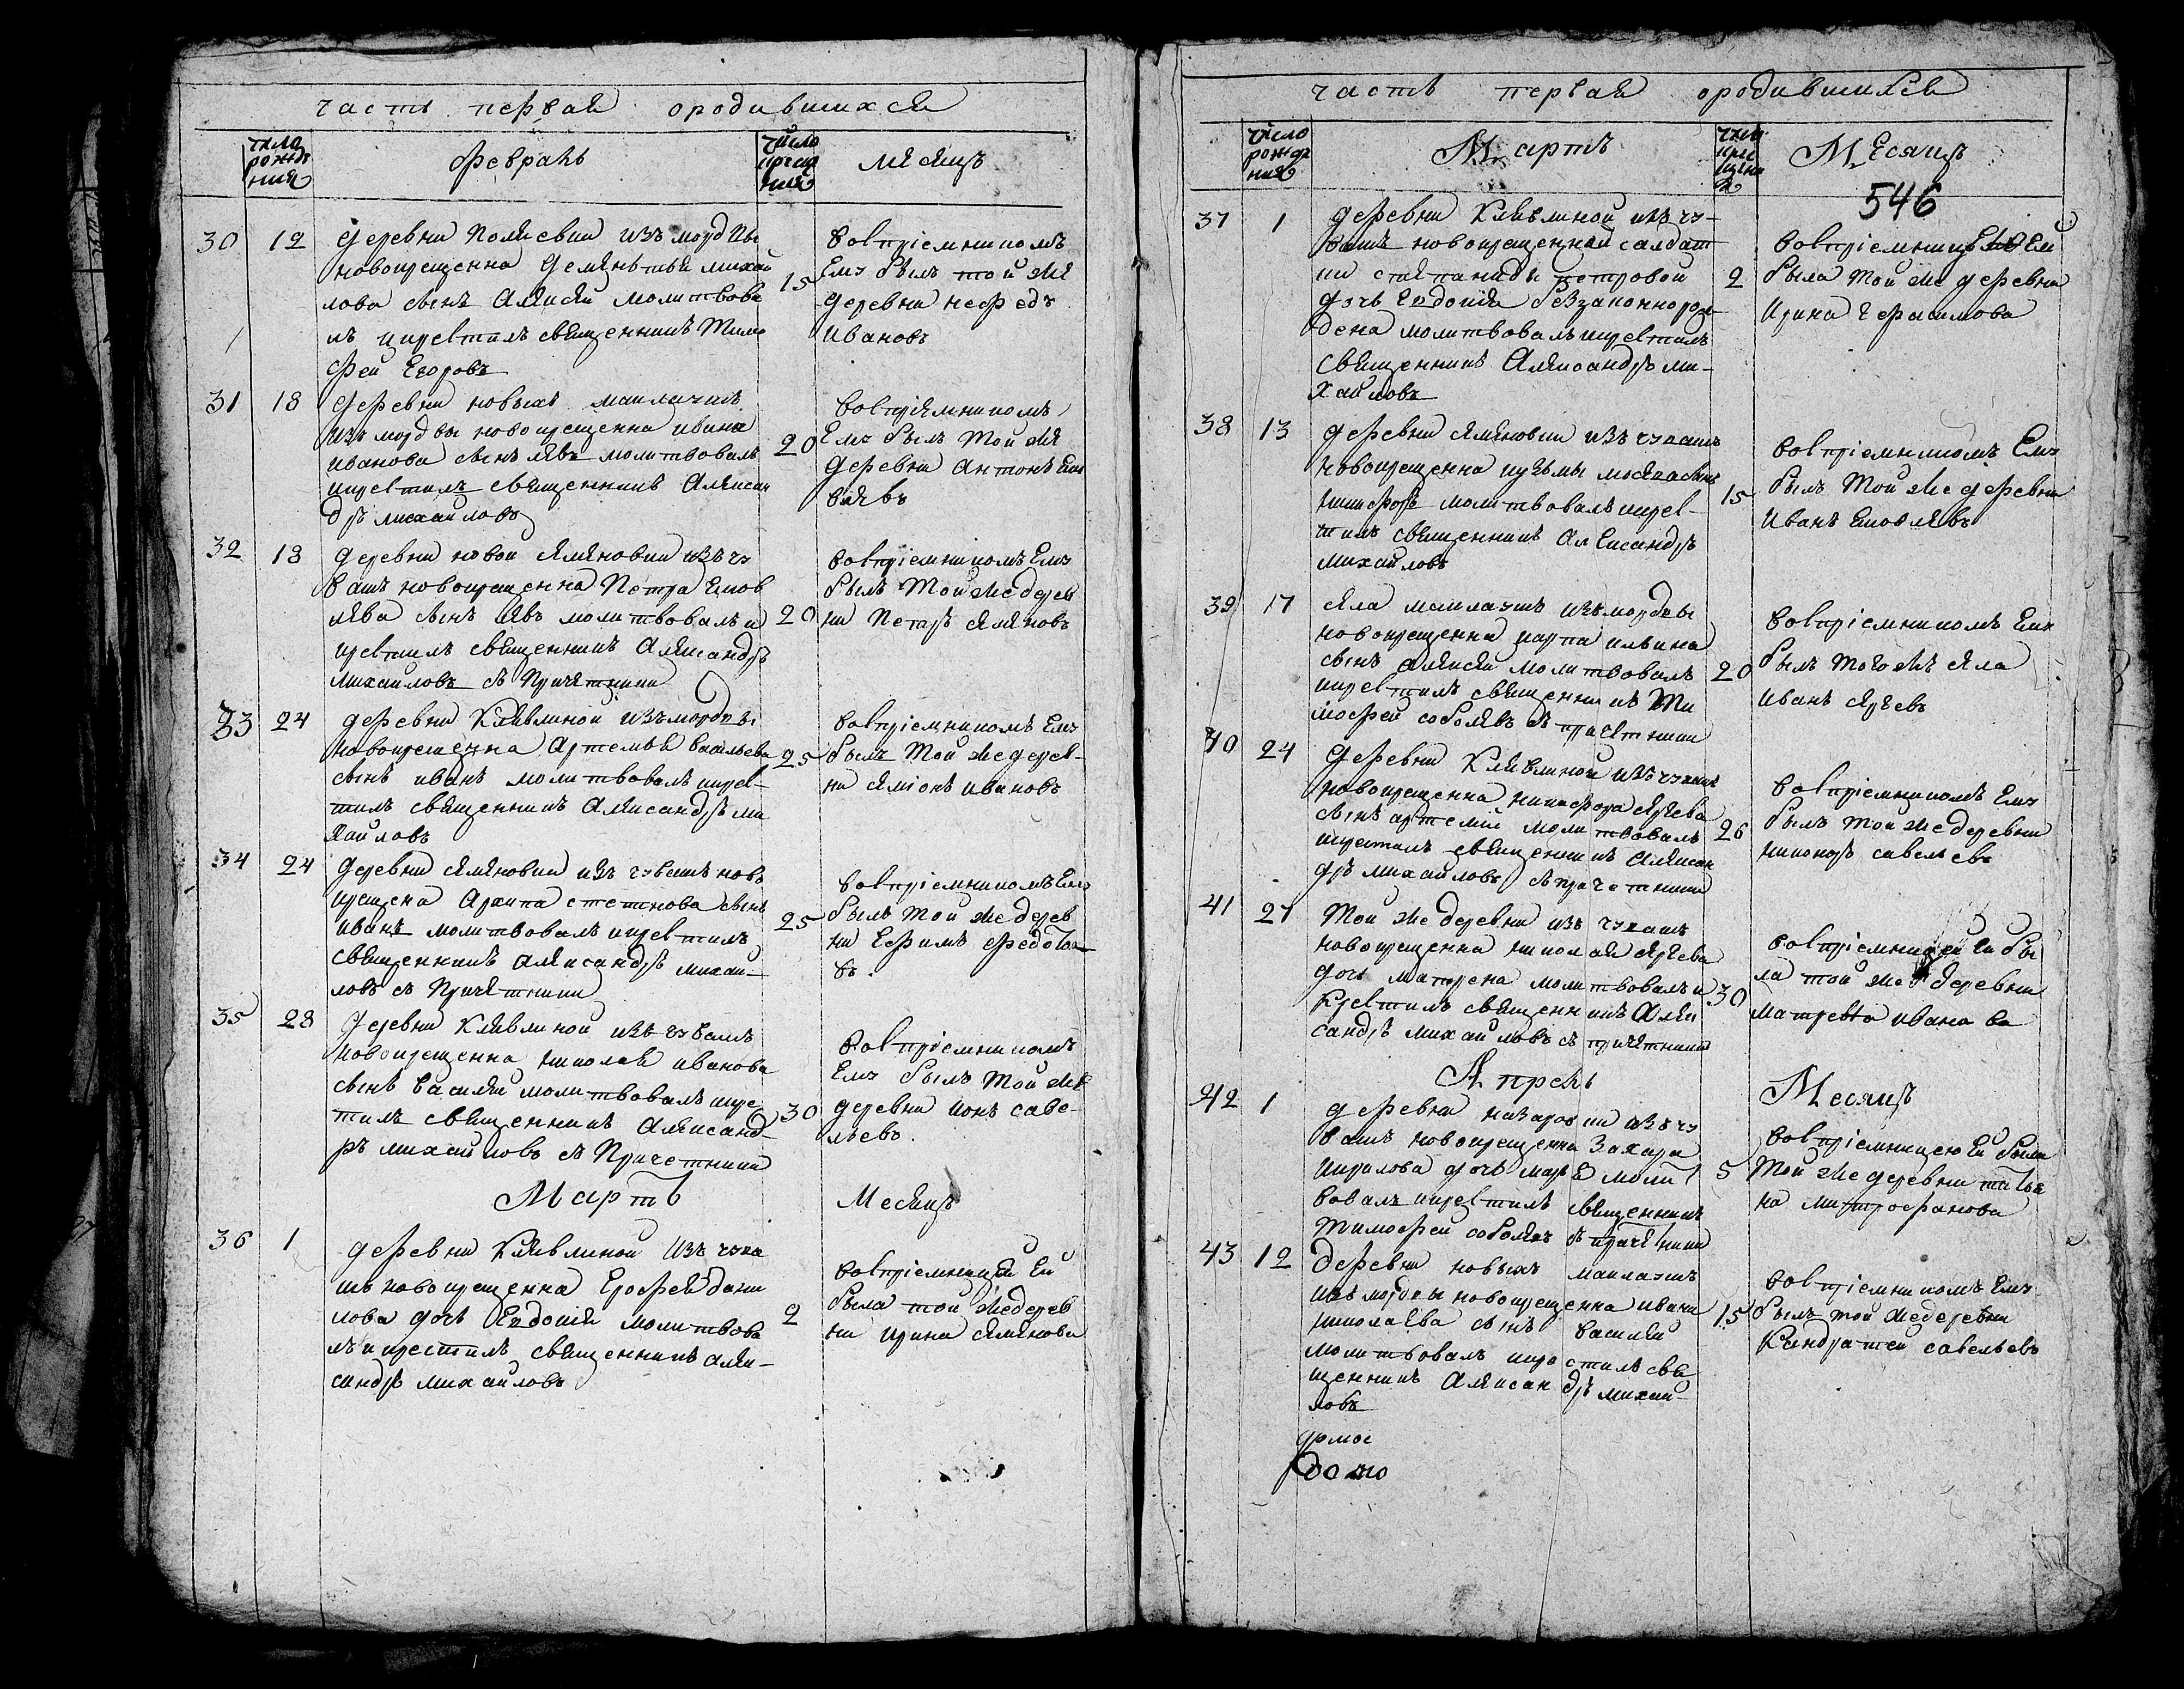 часть первая ородившихся
число рожде ния
февраль
число креще ния
месяцъ
30 12 деревни Полясвки изъ мордвы
новокрещенна Деменьтья михай
лова сынъ Алексей молитвова
лъ икрестилъ священникъ Тимо
фей Егоровъ
15
восприемникомъ
Ему былъ той же
деревни нефедъ
Ивановъ
31 18 деревни новыхъ маклаушъ
изъ мордвы новокрещенна ивана
иванова сынъ левъ молитвовалъ
икрестилъ священникъ Алексан
дръ михайловъ
20
восприемникомъ
Ему былъ той же
деревни антонъ
32 18 деревни новой семеновки изъ чу
вашъ новокрещенна Петра яков
лева сынъ левъ молитвовалъ и
крестилъ священникъ Александръ
михайловъ съ Причетники
20
восприемникомъ Ему
былъ той же дерев
ни Петръ семеновъ
33 24 деревни Клявлиной изъ мордвы
новокрещенна Артемья васильева
сынъ иванъ молитвовалъ икрес
тилъ священникъ Александръ ми
хайловъ
25
восприемникомъ Ему
былъ той же дерев
ни семионъ ивановъ
34 24 деревни семеновки изъ чувашъ ново
крещена Архипа сынъ
иванъ молитвовалъ икрестилъ
священникъ Александръ михай
ловъ съ Причетники
25
восприемникомъ Ему
былъ той же дерев
ни Ефимъ федото
въ.
35 28 деревни Клявлиной изъ чувашъ
новокрещенна николая иванова
сынъ василей молитвовалъ икре
тилъ священникъ Александ
ръ михайловъ съ Причетники
30
восприемникомъ
Ему былъ той же
деревни ионъ саве
льевъ.
Мартъ Месяцъ
36 1 деревни Клявлиной изъ чува
шъ новокрещенна Ерофея дани
лова дочь Евдокия молитвова
лъ икрестилъ священникъ алек
сандръ михайловъ
2
восприемницей Ей
была той же дерев
ни ирина семенова
часть первая ородившихся
число рожде ния
Мартъ
число кре щени я
Месяцъ
546
37 1 деревни Клявлиной изъ чу
вашъ новокрещенной салдат
ки степаниды петровой
дочь Евдокия беззаконнорож
дена молитвовалъ икрестилъ
священникъ Александръ ми
хайловъ
2
восприемницею Ей
была той же деревни
Ирина Герасимова
38 13 деревни семеновки изъ чувашъ
новокрещенна кузьмы сынъ
никифоръ молитвовалъ икрес
тилъ священникъ Александръ
михайловъ
15
восприемникомъ Ему
былъ той же деревни
Иванъ яковлевъ
39 17 села маклаушъ изъ мордвы
новокрещенна карпа ильина
сынъ алексей молитвовалъ
икрестилъ священникъ Ти
мофей соболевъ съ причетники
20
восприемникомъ Ему
былъ того жъ села
иванъ сергевъ
40 24 деревни Клявлиной изъ чувашъ
новокрещенна никифора сергева
сынъ артемий молитвовалъ
икрестилъ священникъ Алексан
дръ михайловъ съ причетники
26
восприемникомъ Ему
былъ той же деревни
никоноръ савельевъ
41 27 Той же деревни изъ чувашъ
новокрещенна николая сергева
дочь матрена молитвовалъ и
крестилъ священникъ Алек
сандръ михайловъ съ причетники
30
восприемницей Ей бы
ла той же деревни
ивано ва
Апрель Месяцъ
42 1 деревни назаровки изъ чу
вашъ новокрещенна Захара
кирилова дочь марья молит
вовалъ икрестилъ священникъ
Тимофей соболевъ съ причетники
5
восприемницею Ей была
той же деревни татья
на митрофанова
43 12 деревни новыхъ маклаушъ
изъ мордвы новокрещенна ивана
николаева сынъ василей
молитвовалъ икрестилъ свя
щенникъ Александръ михай
ловъ
15
восприемникомъ Ему
былъ той же деревни
Кандратей савельевъ